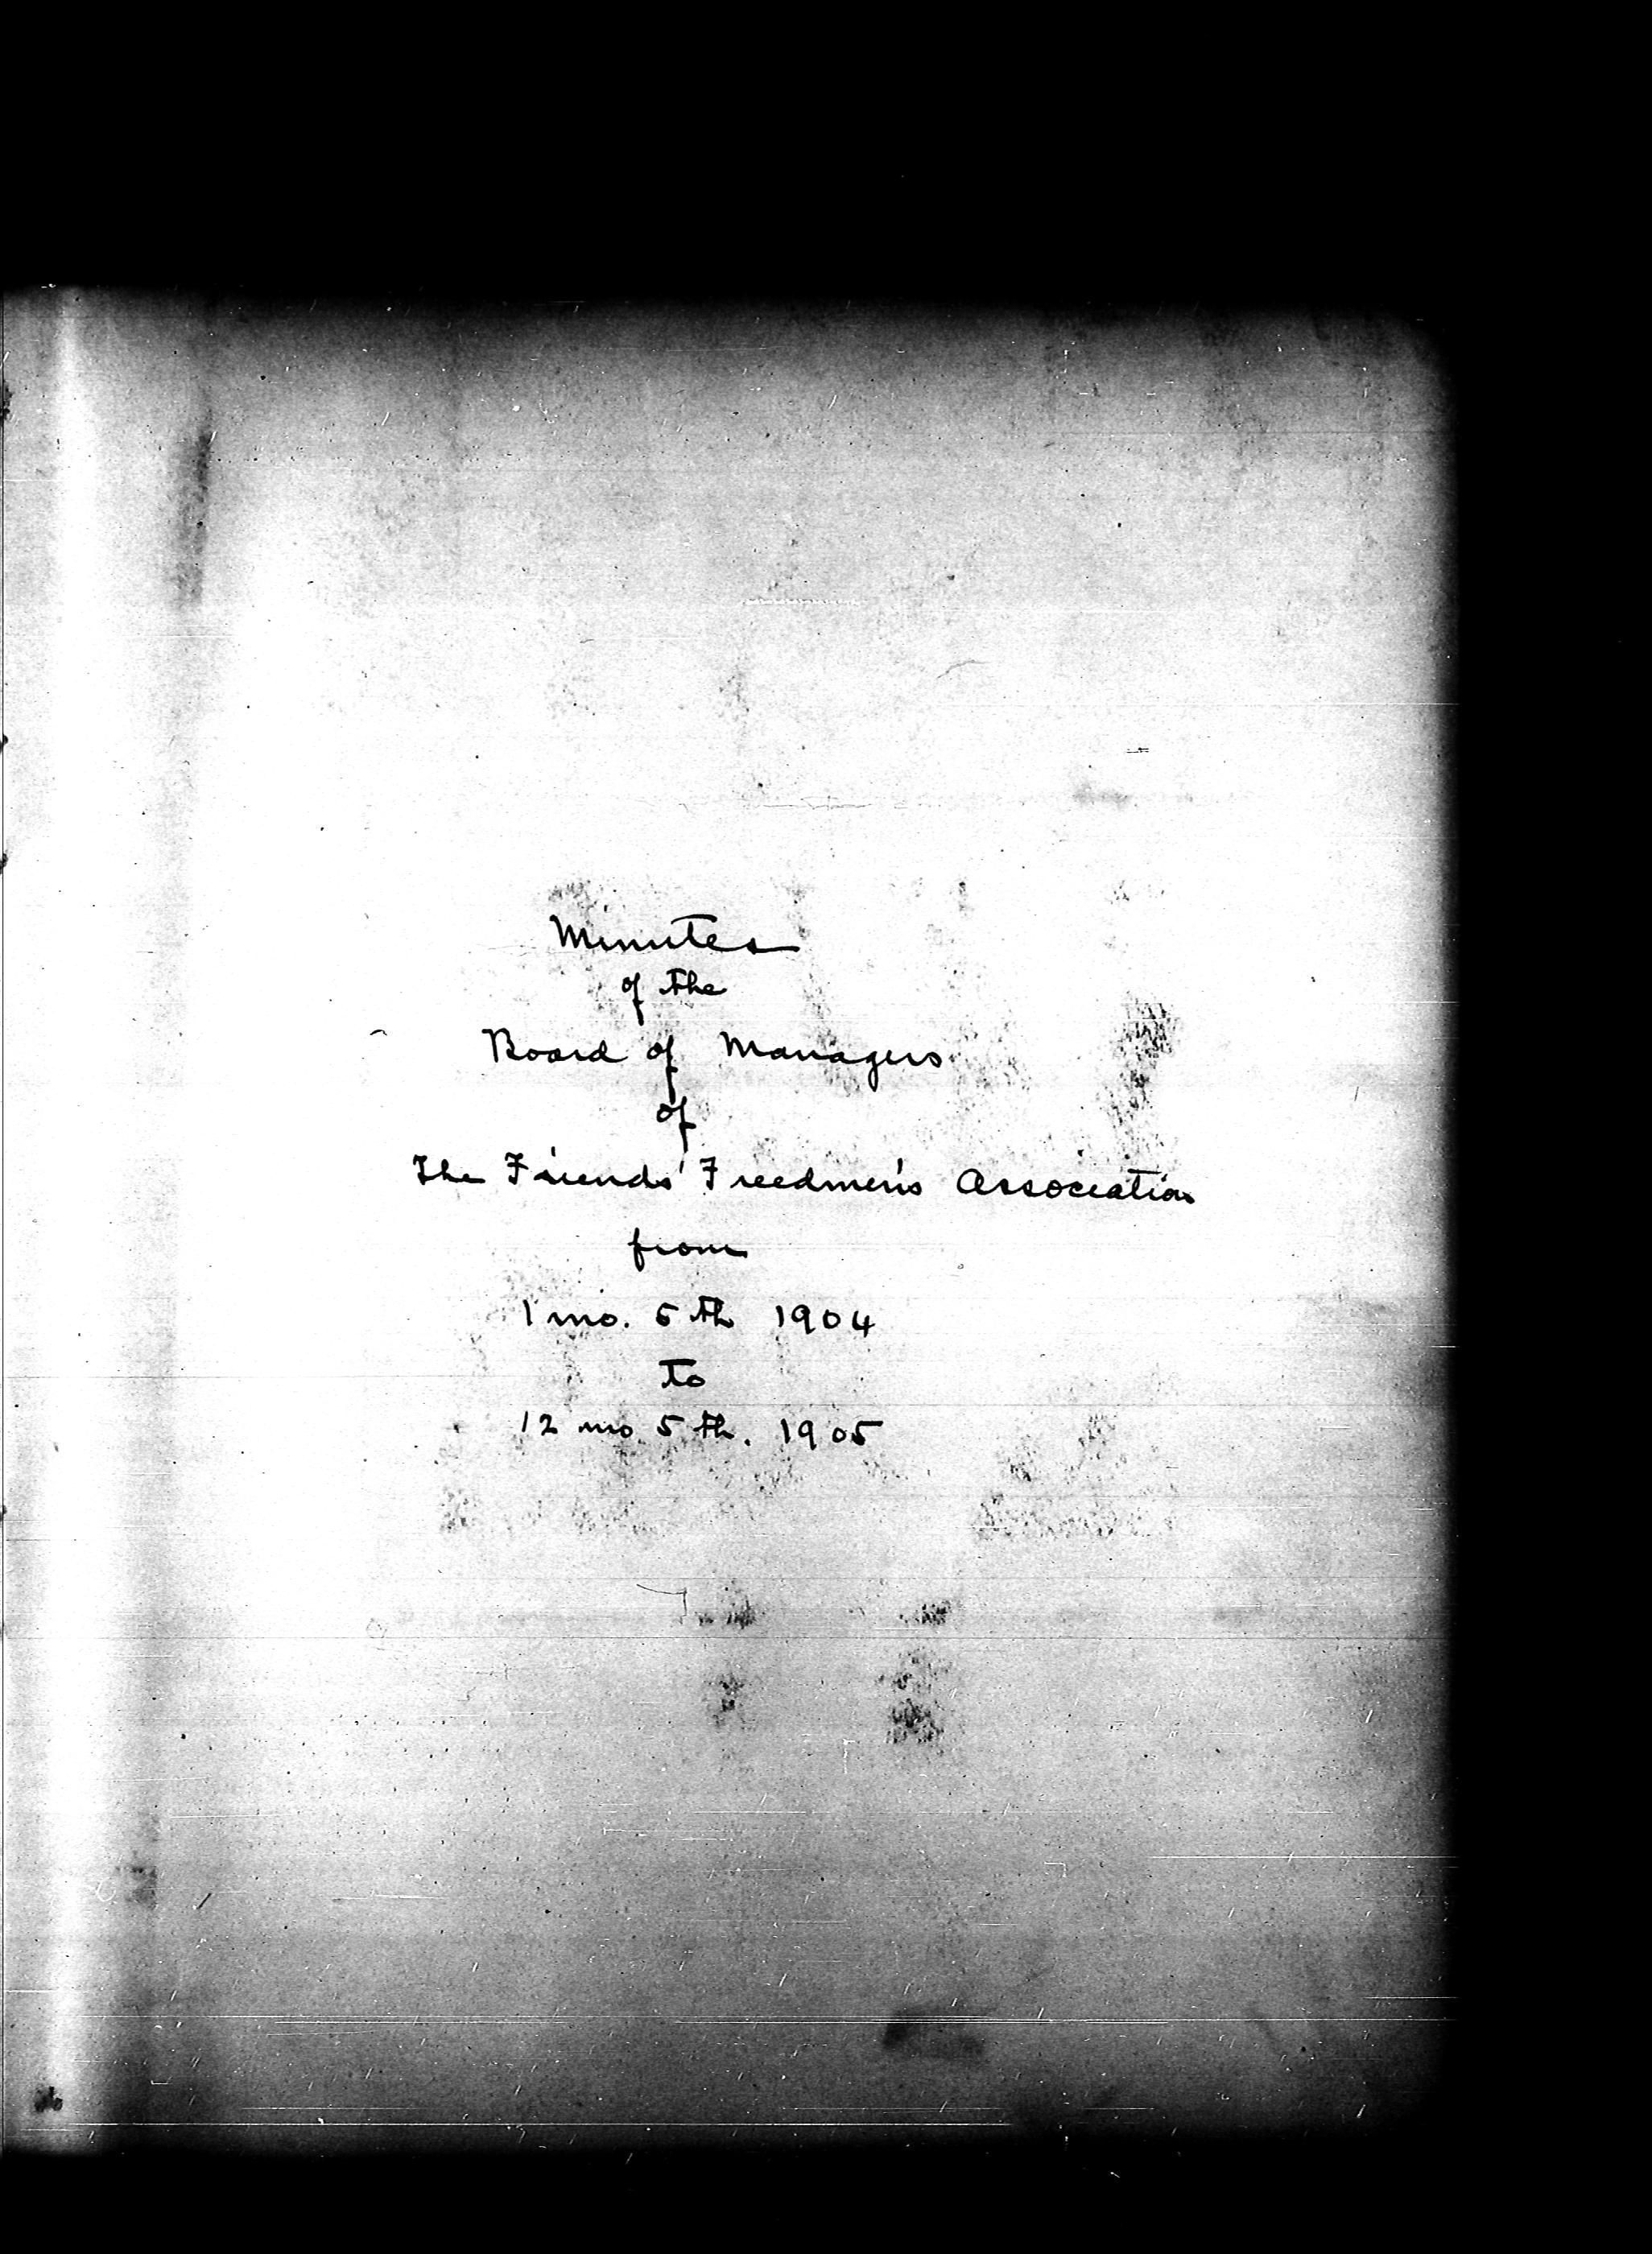 Minutes
of the
Board of Managers
of
The Friends' Freedmen's Association
from
1 mo. 5th 1904
to
12 mo 5th. 1905